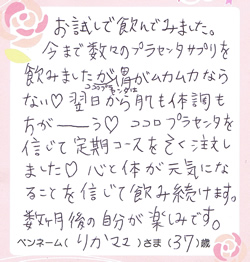 お試しで飲んでみました。
今まで数々のプラセンタサプリを
飲みましたが胃がムカムカなら
ココロプラセンタは
ない♡翌日から肌も体調も
方が――う♡ココロプラセンタを
信じて定期コースをさく注文し
ました♡心と体が元気にな
ることを信じて飲み続けます。
数ヶ月後の自分が楽しみです。
ペンネーム(りかママ)さま(37)歳